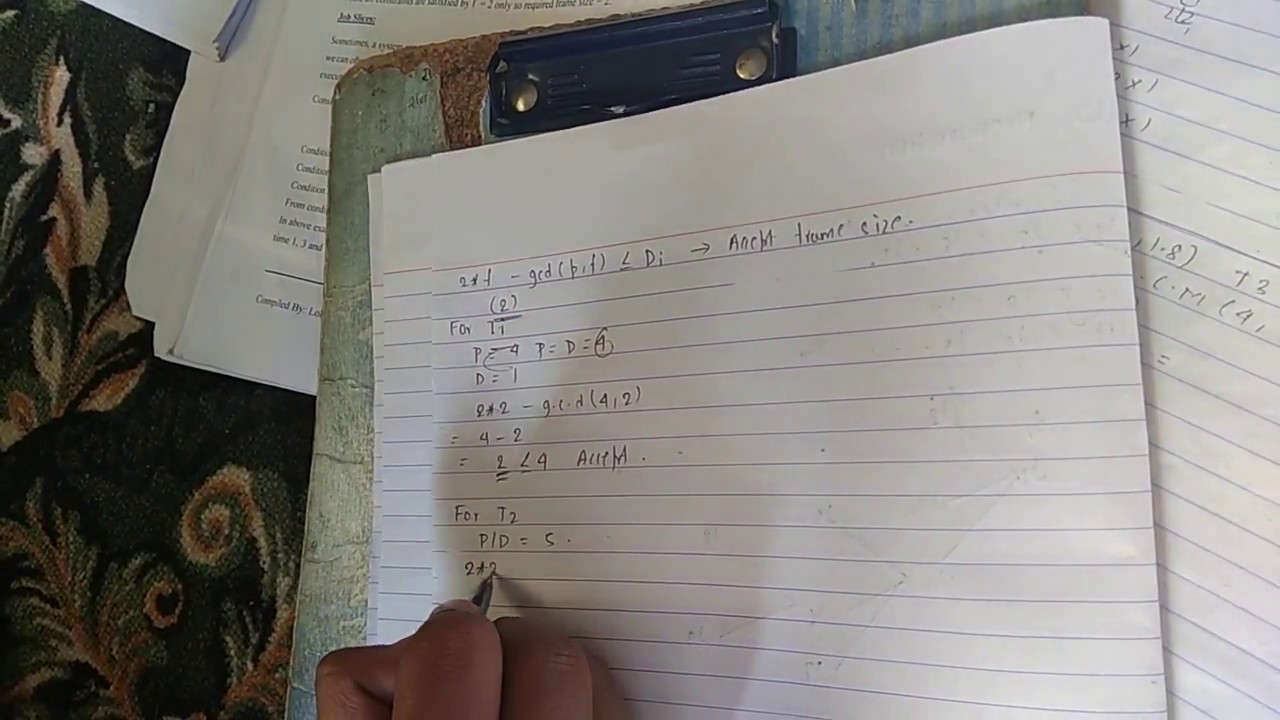 constraints are satisfied by f = 2 only so required frame size = 2.
Job Slices:
Sometimes, a system
we can
execu
Cons
Condit
Condition
Condition
From condi
In above exa
time 1, 3 and
Compiled By: Lo
2*f - gcd(p,f) ≤ Di → Accept frame size.
(2)
For T1
P = 4 P = D = 4
D = 1
2*2 - g.c.d(4,2)
= 4 - 2
= 2 ≤ 4 Accept.
For T2
P/D = 5.
2*2
x)
x)
x)
,1.8) T3
C.M (4,
=